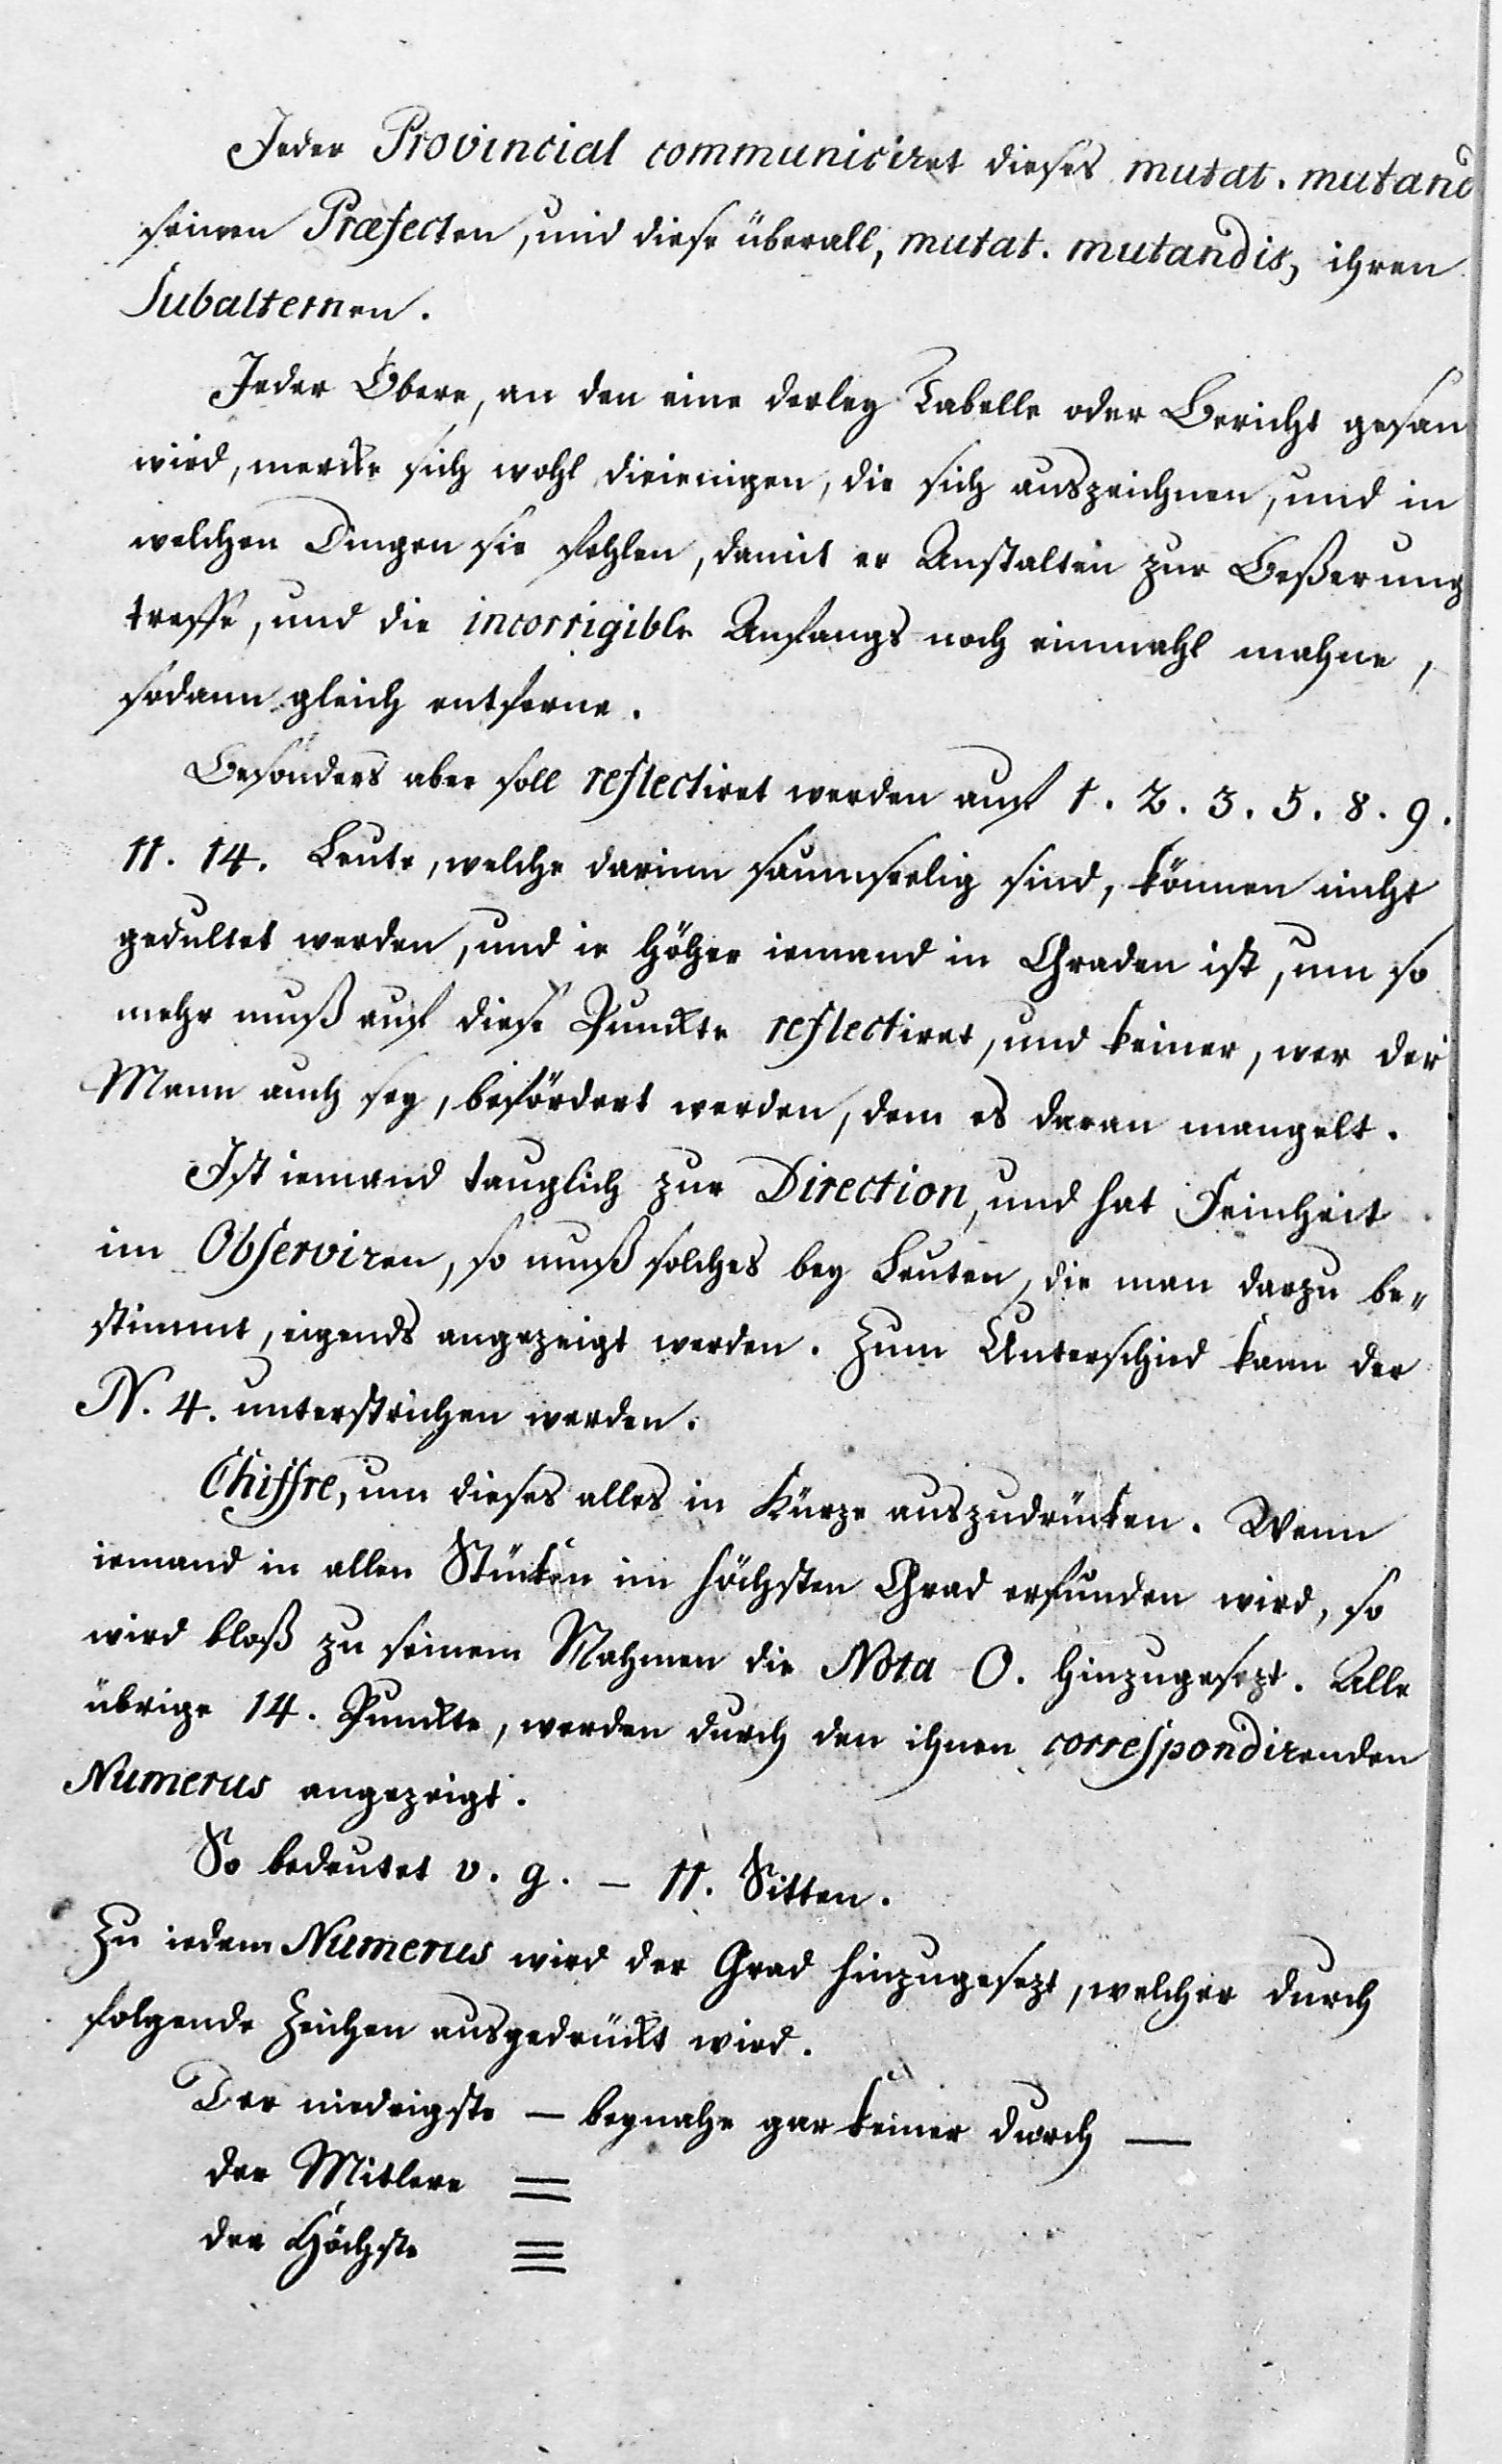 Jeder Provincial communiciret dieses mutat. mutand
seinen Præfecten, und diese überall, mutat. mutandis, ihren
Subalternen.
Jeder Obere, an den eine derley Tabelle oder Bericht gesan
wird, mercke sich wohl dieienigen, die sich auszeichnen, und in
welchen Dingen sie fehlen, damit er Anstalten zur Beßerung
treffe, und die incorrigible Anfangs noch einmahl mahne,
sodann gleich entferne.
Besonders aber soll reflectiret werden auf 1. 2. 3. 5. 8. 9.
11. 14. Leute, welche darinn saumseelig sind, können nicht
gedultet werden, und ie höher iemand in Graden ist, um so
mehr muß auf diese Punckte reflectiret, und keiner, wer der
Mann auch sey, befördert werden, dem es daran mangelt.
Ist iemand tauglich zur Direction, und hat Feinheit
im Observiren, so muß solches bey Leuten, die man darzu be„
stimmt, eigends angezeigt werden. Zum Unterschied kann der
N. 4. unterstrichen werden.
Chiffre, um dieses alles in Kürze auszudrücken. Wenn
iemand in allen Stücken im höchsten Grad erfunden wird, so
wird bloß zu seinem Nahmen die Nota O. hinzugesezt. Alle
übrige 14. Punckte, werden durch den ihnen correspondirenden
Numerus angezeigt.
So bedeutet v. g. – 11. Sitten.
Zu iedem Numerus wird der Grad hinzugesezt, welcher durch
folgende Zeichen ausgedrückt wird.
Der niedrigste – beynahe gar keiner durch —
der Mitlere =
der Höchste ≡